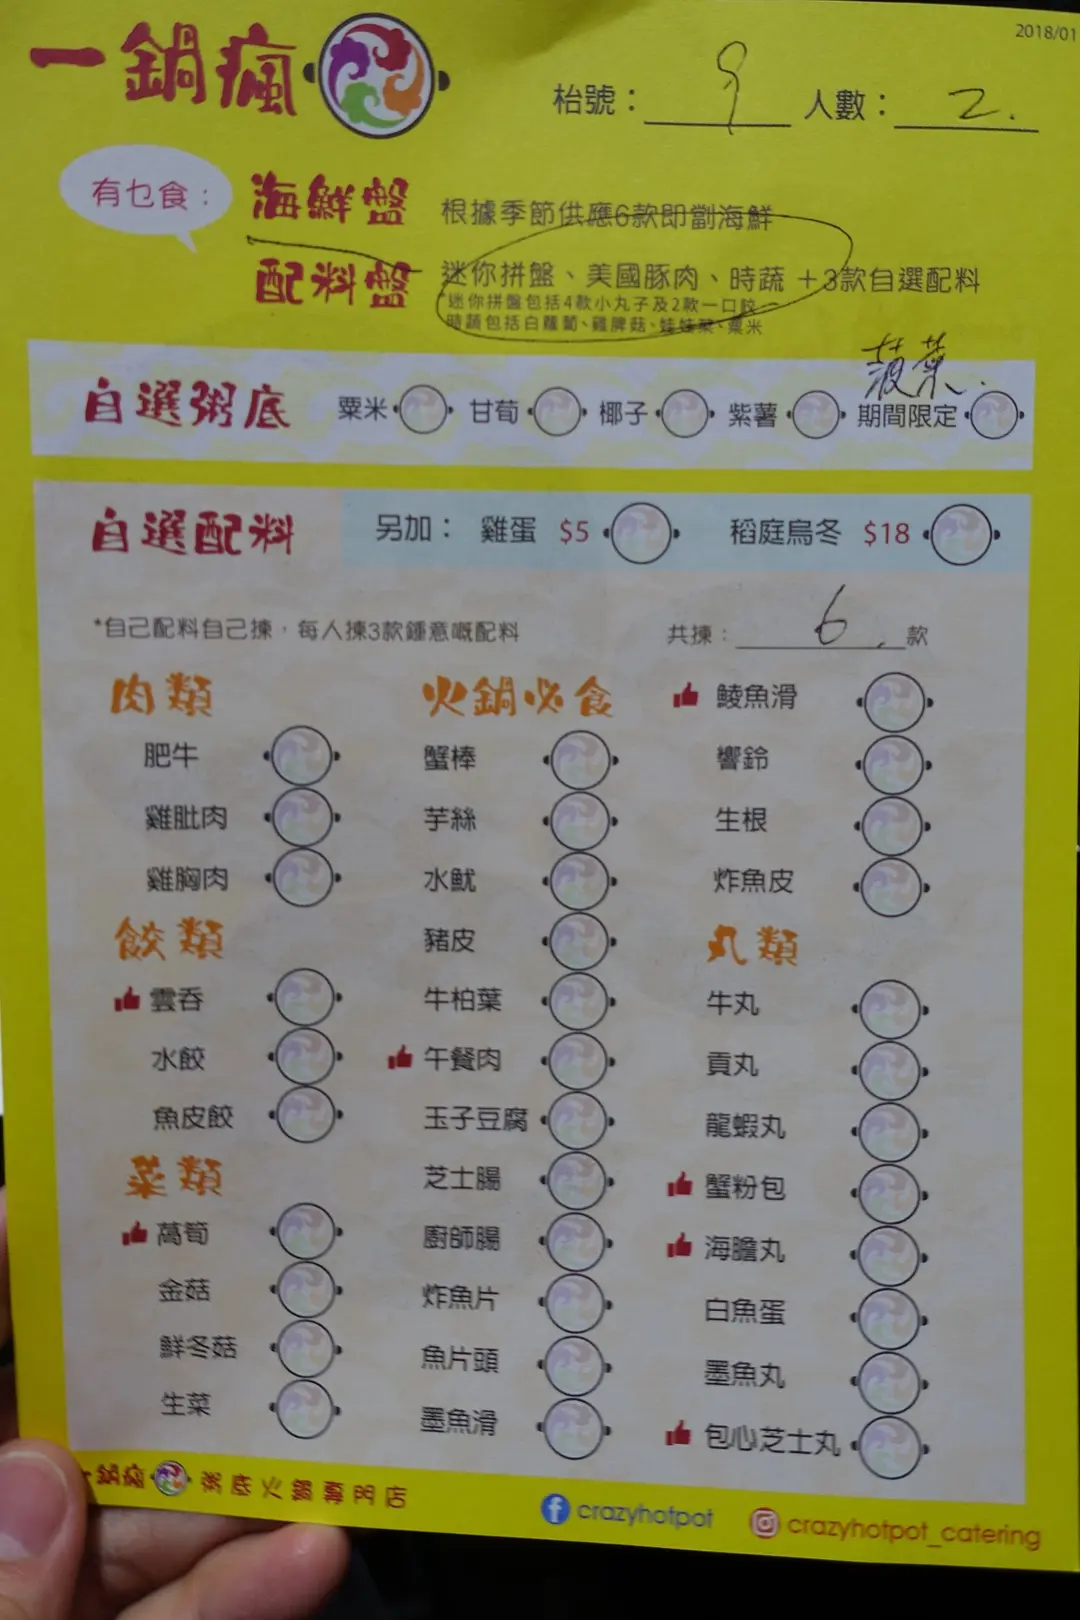 2018/01
一鍋瘋
枱號：9 人數：2.
有乜食：
海鮮盤 根據季節供應6款即劏海鮮
配料盤 迷你拼盤、美國豚肉、時蔬 +3款自選配料
*迷你拼盤包括4款小丸子及2款一口餃
時蔬包括白蘿蔔、雞脾菇、娃娃菜、粟米
菠菜.
自選粥底 粟米 甘荀 椰子 紫薯 期間限定
自選配料 另加： 雞蛋 $5 稻庭烏冬 $18
*自己配料自己揀，每人揀3款鍾意嘅配料 共揀：6.款
肉類
肥牛
雞肶肉
雞胸肉
餃類
雲吞
水餃
魚皮餃
菜類
萵筍
金菇
鮮冬菇
生菜
火鍋必食
蟹棒
芋絲
水魷
豬皮
牛柏葉
午餐肉
玉子豆腐
芝士腸
廚師腸
炸魚片
魚片頭
墨魚滑
鯪魚滑
響鈴
生根
炸魚皮
丸類
牛丸
貢丸
龍蝦丸
蟹粉包
海膽丸
白魚蛋
墨魚丸
包心芝士丸
一鍋瘋 粥底火鍋專門店
crazyhotpot crazyhotpot_catering